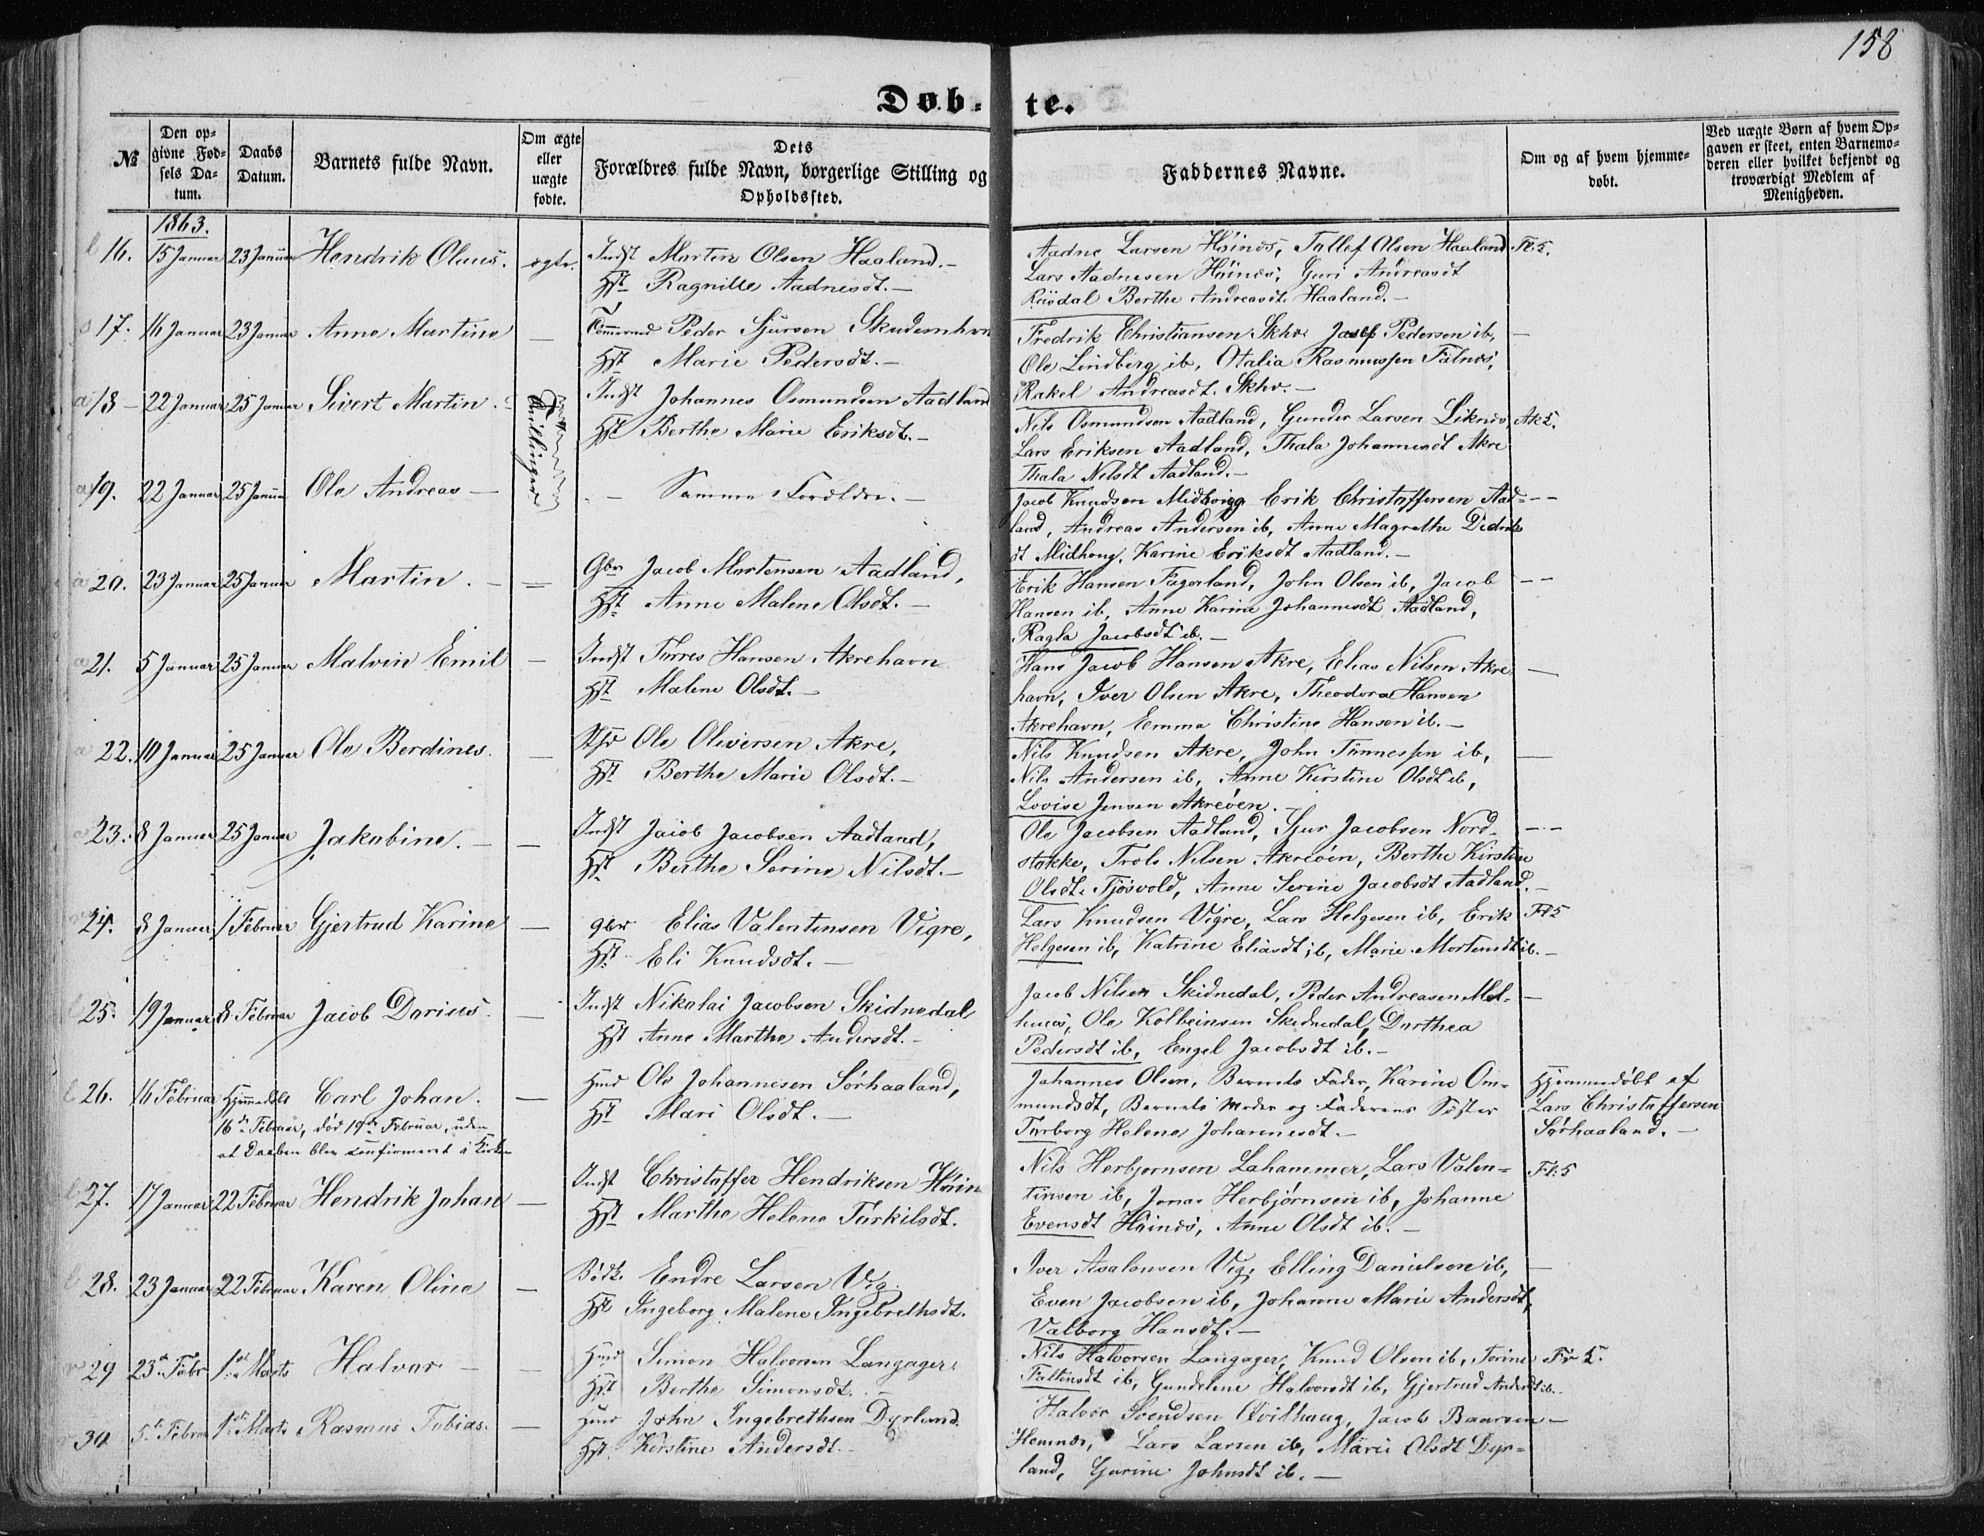 158
Døb-te.
№
Den op-
givne Fød-
sels Da-
tum.
Daabs
Datum.
Barnets fulde Navn.
Om ægte
eller
uægte
fødte.
Dets
Forældres fulde Navn, borgerlige Stilling og
Opholdssted.
Faddernes Navne.
Om og af hvem hjemme-
døbt.
Ved uægte Børn af hvem Op-
gaven er skeet, enten Barnemo-
deren eller hvilket bekjendt og
troværdigt Medlem af
Menigheden.
1863.
16. 15 Januar 23 Januar Hendrik Olaus. ægte. Indst Morten Olsen Haaland.-
Hst Ragnille Aadnesdt.-
Aadne Larsen Höines, Tollef Olsen Haaland
Lars Aadnesen Höines, Guri Andreasdt
Berthe Andreasdt. Haaland.-
17. 16 Januar 23 Januar Anne Martine - Peder Sjursen Skudesnhvn
Hst Marie Pedersdt.-
Fredrik Christiansen Skhv. Pedersen ib, -
Ole Lindberg ib, Otalia Rasmussen Falnes,
Rakel Andreasdt. Skhv.-
18 - 22 Januar 25 Januar Sivert Martin. Tvillinger Indst Johannes Osmundsen Aadland
Hst Berthe Marie Eriksdt.-
Nils Osmundsen Aadland, Gunder Larsen Liknes,
Lars Eriksen Aadland, Thala Johannesdt Akre
Thala Nilsdt Aadland.-
19. 22 Januar 25 Januar Ole Andreas - - Samme Forældre.-
Jacob Knudsen Midboigg Erik Christoffersen Aad- --
land, Andreas Andersen ib, Anne Magrethe Didriks
dt Midhoug, Karine Eriksdt Aadland.-
20. 23 Januar 25 Januar Martin. - - Gbr Jacob Mortensen Aadland,
Hst Anne Malene Olsdt.-
Erik Hansen Fagerland, John Olsen ib, Jacob --
Hansen ib, Anne Karine Johannesdt Aadland,
Ragla Jacobsdt ib.-
21. 5 Januar 25 Januar Malvin Emil - Indst Torres Hansen Akrehavn
Hst Malene Olsdt.-
Hans Jacob Hansen Akre, Elias Nilsen Akre -
havn, Iver Olsen Akre, Theodora Hansen
Akrehavn, Emma Christine Hansen ib.-
22. 10 Januar 25 Januar Ole Berdines. - Ole Oliversen Akre,
Hst Berthe Marie Olsdt.-
Nils Knudsen Akre, John Tönnessen ib, -
Nils Andersen ib, Anne Kirstine Olsdt ib,
Lovise Jensen Akreöen.-
23. 8 Januar 25 Januar Jakobine. - - Indst Jacob Jacobsen Aadland,
Hst Berthe Serine Nilsdt.-
Ole Jacobsen Aadland, Sjur Jacobsen Nord- --
stokke, Trols Nilsen Akreöen, Berthe Kirstine
Olsdt. Tjösvold, Anne Serine Jacobsdt Aadland.-
24. 8 Januar 1 Februar Gjertrud Karine - gbr Elias Valentinsen Vigre,
Hst Eli Knudsdt.-
Lars Knudsen Vigre, Lars Helgesen ib, Erik
Helgesen ib, Katrine Eliasdt ib, Marie Mortensdt ib.-
25. 19 Januar 8 Februar Jacob Darius. - Indst Nikolai Jacobsen Skidnedal,
Hst Anne Marthe Andersdt.-
Jacob Nilsen Skidnedal, Peder Andreasen Mel- -
huus, Ole Kolbeinsen Skidnedal, Dorthea
Pedersdt ib, Engel Jacobsdt ib.-
26. 16 Februar Hjemmedöbt Carl Johan. - Huud Ole Johannesen Sörhaaland,
16de Februar, död 19de Februar, uden
at Daaben blev confirmeret i Kirken
Hst Mari Olsdt.-
Johannes Olsen, Barnets Fader, Karine Om-
mundsdt, Barnets Moder og Faderens Söster
Torborg Helene Johannesdt.-
Hjemmedöbt af
Lars Christoffersen
Sörhaaland.-
27. 17 Januar 22 Februar Hendrik Johan - Indst Christoffer Hendriksen Höin
Hst Marthe Helene Torkilsdt.
Nils Herbjornsen Lahammer, Lars Valen-
tinsen ib, Jonas Herbjørnsen ib, Johanne
Evensdt Höines, Anne Olsdt ib.-
28. 23 Januar 22 Februar Karen Oline - Bödk. Endre Larsen Vig.
Hst Ingeborg Malene Ingebrethsdt.
Iver Asalonsen Vig, Elling Danielsen ib, -
Even Jacobsen ib, Johanne Marie Andersdt,
Valborg Hansdt.-
29 23de Febr 1ste Marts Halvor - - Huud Simon Halvorsen Langager,
Hst Berthe Simonsdt.-
Nils Halvorsen Langager, Knud Olsen ib, Torine
Faltinsdt ib, Gundelene Halvorsdt ib, Gjertrud Andersdt ib.-
30 5te Febru 1ste Marts Rasmus Tobias. - Huud John Ingebrethsen Dyrland.
Hst. Kirstine Andersdt.-
Halvor Svendsen Qvilhaug, Jacob Baarsen -
Hemnes, Lars Larsen ib, Marie Olsdt Dyr-
land, Gurine Johnsdt ib.-